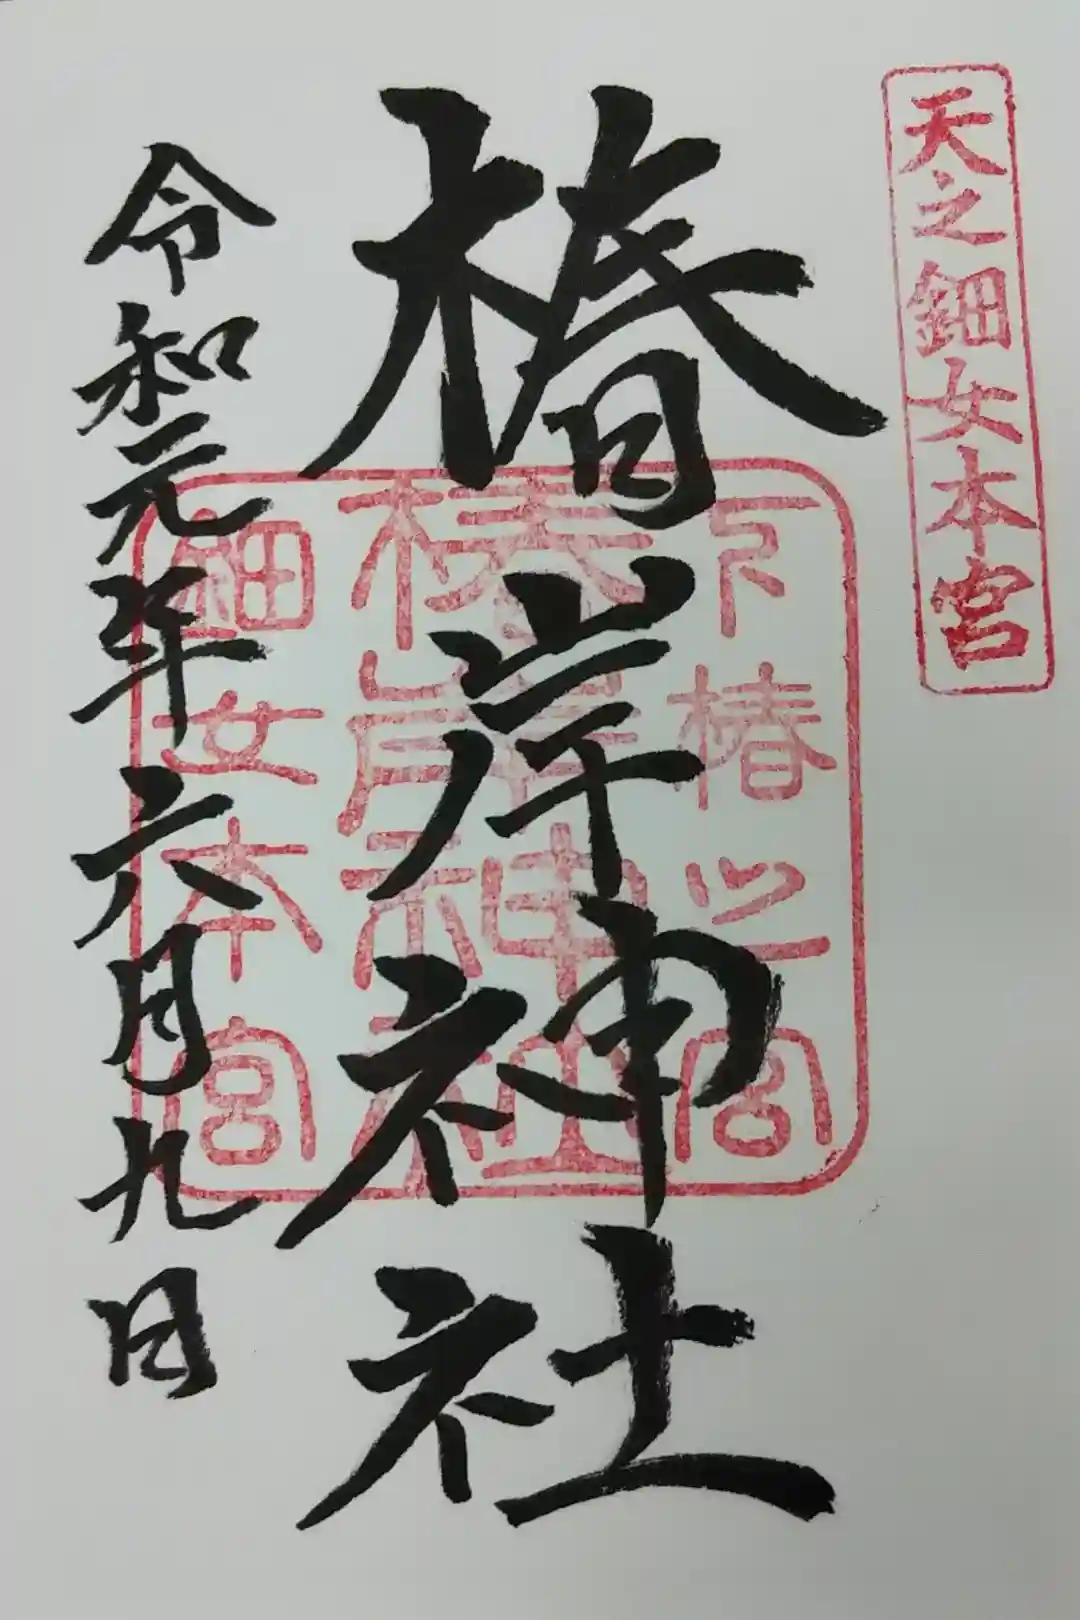 天之鈿女本宮
椿岸神社
下椿之宮
椿岸神社
鈿女本宮
令和元年六月九日